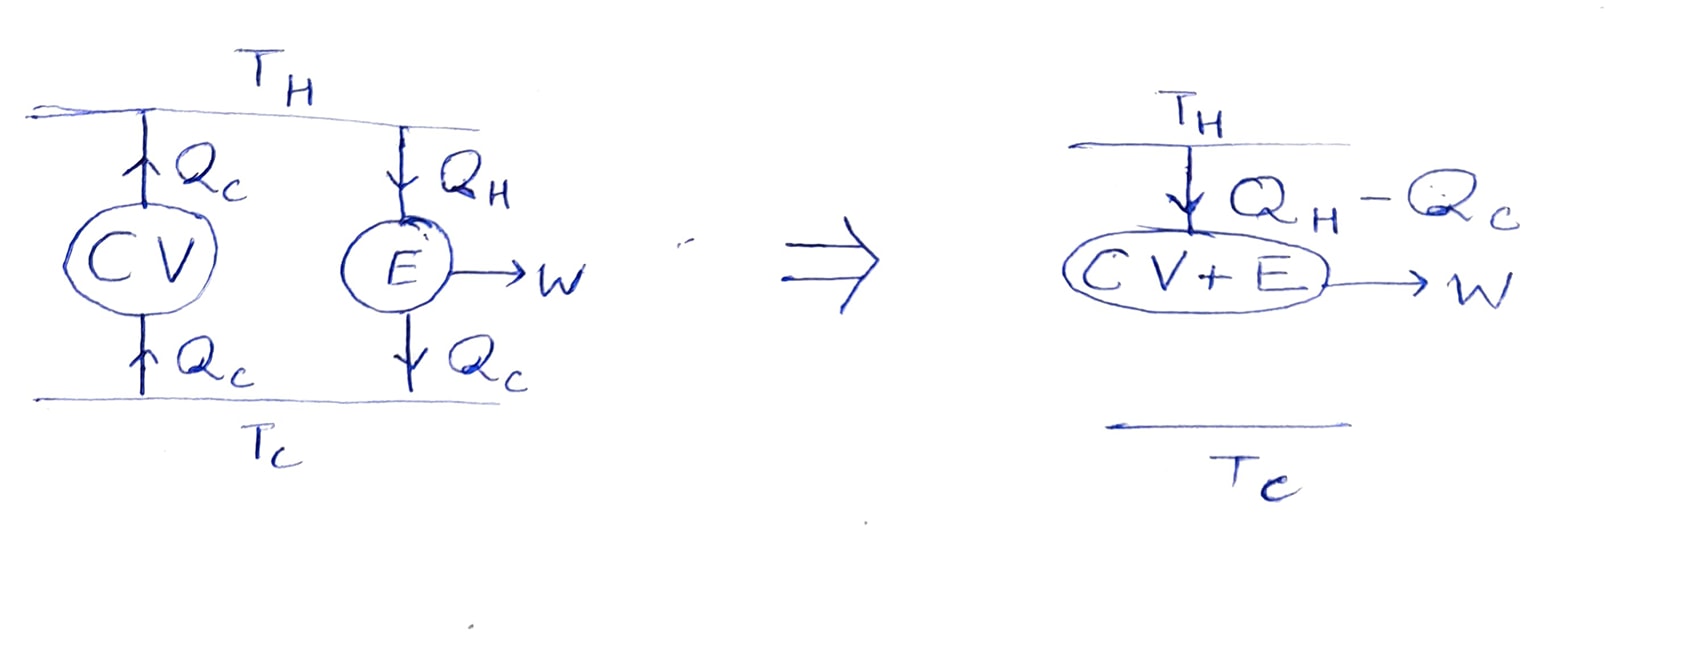 T_H
Q_C
Q_H
CV
E
W
Q_C
Q_C
T_C
⇒
T_H
Q_H - Q_C
CV+E
W
T_C